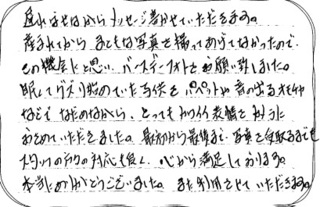 良いなせなから メッセージ書かせていただきます。
産まれてから まともな写真を撮ってあげてなかったので、
この機会にと思い、バースデーフォトをお願い致しました。
眠くてグズリ始めていた子供を パペットや音の出るオモチャ
などで なだめながら、とってもカワイイ表情を
おさめていただきました。最初から最後まで、写真を受取るまでも
スタッフの方々の対応も良く、心から満足しております。
本当にありがとうございました。また 利用させて いただきます。